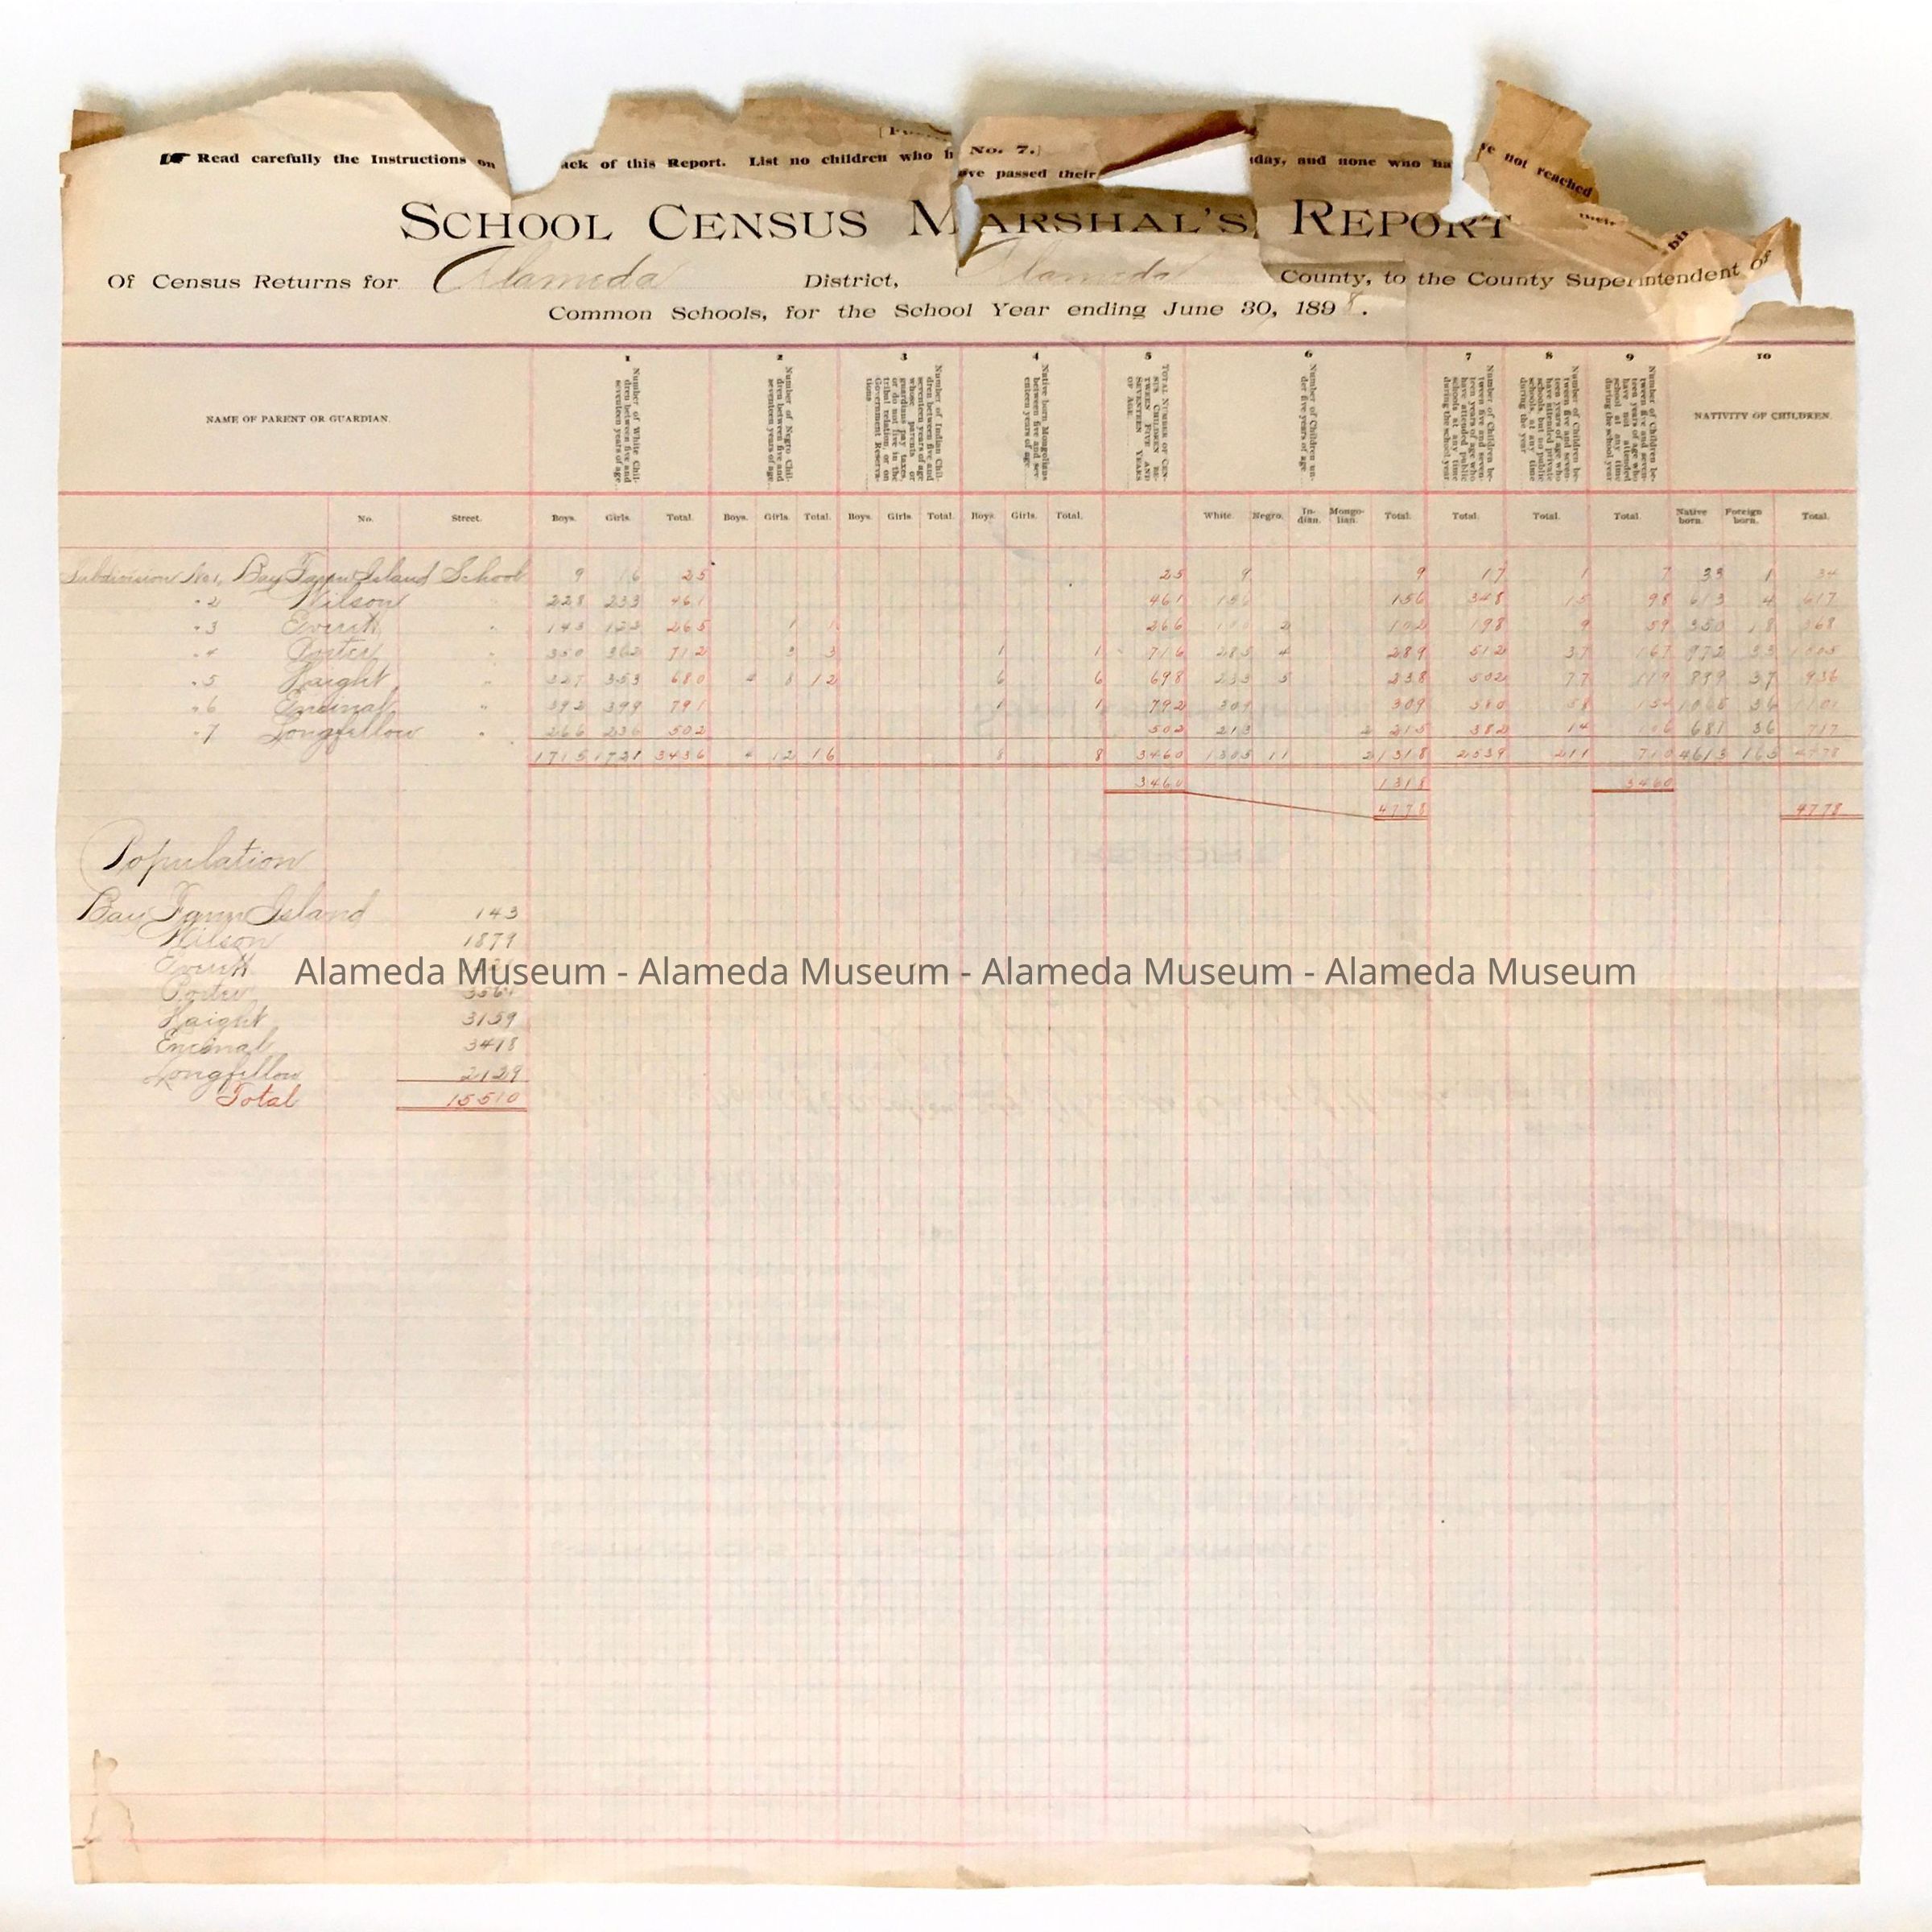 [Fo
☞ Read carefully the Instructions on ack of this Report. List no children who h No. 7.] day, and none who ha ve not reached
ave passed their their bi
SCHOOL CENSUS MARSHAL'S REPORT
Of Census Returns for Alameda District, Alameda County, to the County Superintendent of
Common Schools, for the School Year ending June 30, 1898.
1 2 3 4 5 6 7 8 9 10
NAME OF PARENT OR GUARDIAN.
Number of White Children between five and seventeen years of age
Number of Negro Children between five and seventeen years of age
Number of Indian Children between five and seventeen years of age whose parents or guardians pay taxes, or do not live in the tribal relation, or on Government Reservations
Native born Mongolians between five and seventeen years of age
TOTAL NUMBER OF CENSUS CHILDREN BETWEEN FIVE AND SEVENTEEN YEARS OF AGE
Number of Children under five years of age
Number of Children between five and seventeen years of age who have attended public schools at any time during the school year
Number of Children between five and seventeen years of age who have attended private schools, but no public schools, at any time during the year
Number of Children between five and seventeen years of age who have not attended school at any time during the school year
NATIVITY OF CHILDREN.
No. Street. Boys. Girls. Total. Boys. Girls. Total. Boys. Girls. Total. Boys. Girls. Total. White. Negro. Indian. Mongolian. Total. Total. Total. Total. Native born. Foreign born. Total.
Subdivision No 1, Bay Farm Island School 9 16 25 25 9 9 17 1 7 33 1 34
" 2 Wilson " 228 233 461 461 156 156 348 15 98 613 4 617
" 3 Everett " 143 122 265 1 1 266 2 102 198 9 59 350 18 368
" 4 Porter " 350 362 712 3 3 1 1 716 285 4 289 512 37 167 972 33 1005
" 5 Haight " 327 353 680 4 8 12 6 6 698 233 5 238 502 77 119 899 37 936
" 6 Encinal " 392 399 791 1 1 792 309 309 580 58 154 1065 36 1101
" 7 Longfellow " 266 236 502 502 213 2 215 382 14 106 681 36 717
1715 1721 3436 4 12 16 8 8 3460 1305 11 2 1318 2539 211 710 4613 165 4778
3460 1318 3460
4778 4778
Population
Bay Farm Island 143
Wilson 1879
Everett
Porter 3561
Haight 3159
Encinal 3418
Longfellow 2129
Total 15510
Alameda Museum - Alameda Museum - Alameda Museum - Alameda Museum